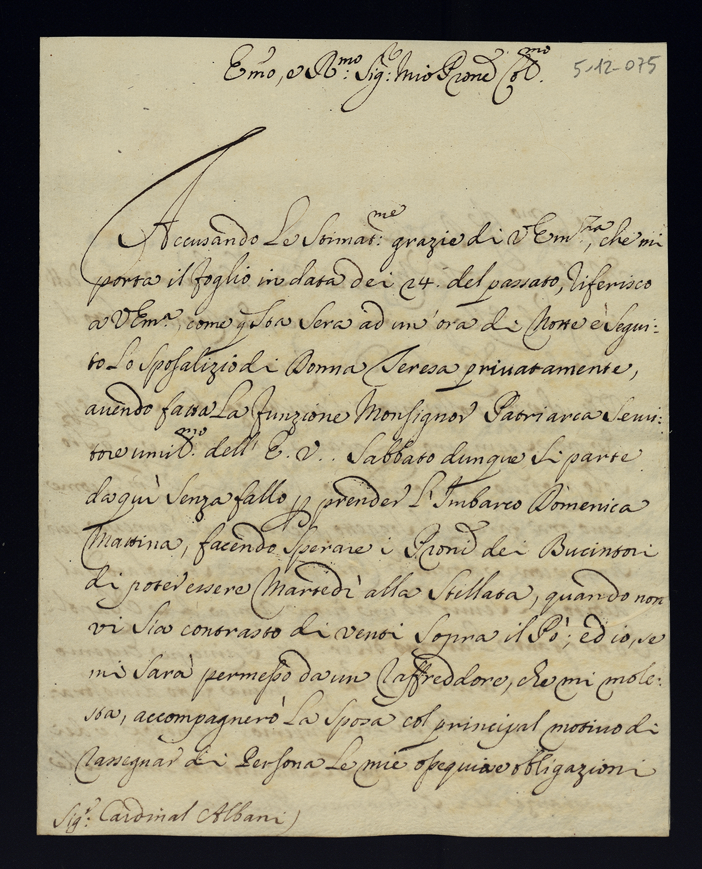 Emo, e Rmo: Sigr: Mio Prone Colmo.
5-12-075
Accusando Le Stimatme: grazie di VEmza, che mi
porta il foglio in data dei 24. del passato, riferisco
a VEma, come qsta Sera ad un'ora di Notte è Segui:
to Lo Sposalizio di Donna Teresa privatamente,
avendo fatta La funzione Monsignor Patriarca Servi:
tore umilmo: dell'E. V.. Sabbato dunque Si parte
da quì Senza fallo p prender L'Imbarco Domenica
Mattina, facendo Sperare i Proni dei Bucintori
di poter essere Martedì alla Stellata, quando non
vi Sia contrasto di venti Sopra il Pò; ed io, se
mi Sarà permesso da un raffreddore, che mi mole:
sta, accompagnerò La Sposa col principal motivo di
rassegnar di Persona Le mie ossequia e obligazioni
Sigr: Cardinal Albani)